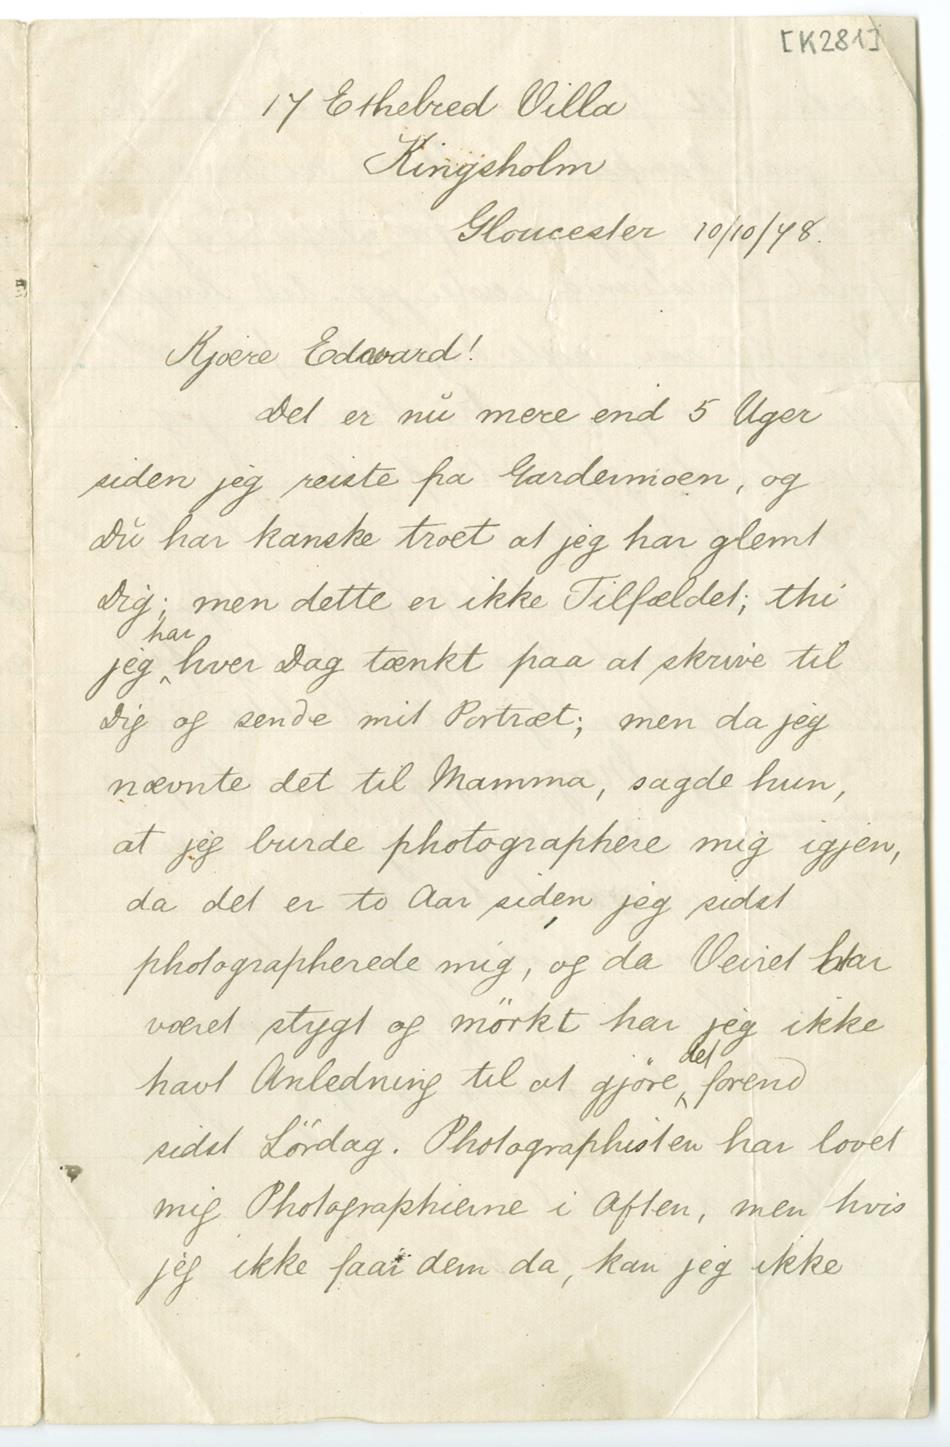 [K281]
17 Ethebred Villa
Kingsholm
Gloucester 10/10/78.
Kjære Edward!
Det er nŭ mere end 5 Uger
siden jeg reiste fra Gardermoen, og
Dŭ har kanske troet at jeg har glemt
Dig; men dette er ikke Tilfældet; thi
har
jeg ‸ hver Dag tænkt paa at skrive til
Dig og sende mit Portræt; men da jeg
nævnte det til Mamma, sagde hun,
at jeg burde photographere mig igjen,
da det er to Aar siden jeg sidst
photographerede mig, og da Veiret har
været stygt og mörkt har jeg ikke
det
havt Anledning til at gjöre ‸ forend
sidst Lördag. Photographisten har lovet
mig Photographierne i Aften, men hvis
jeg ikke faar dem da, kan jeg ikke